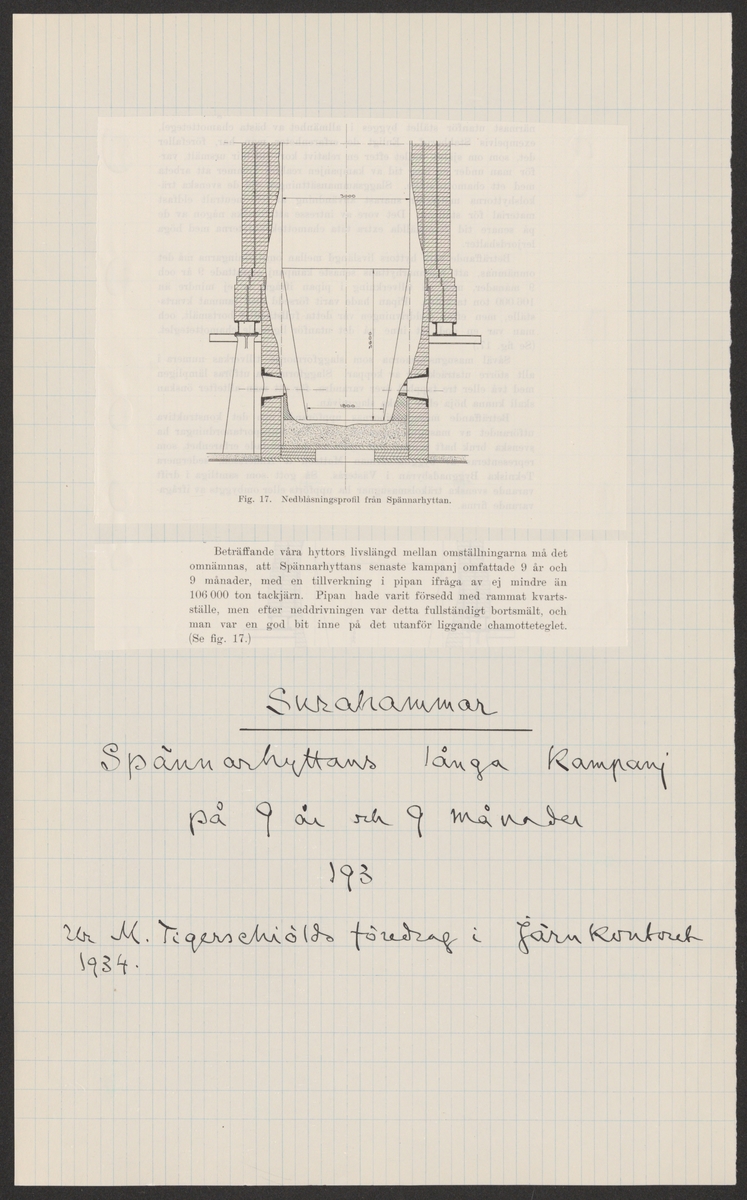 3000
3600
1800
Fig. 17. Nedblåsningsprofil från Spännarhyttan.
Beträffande våra hyttors livslängd mellan omställningarna må det
omnämnas, att Spännarhyttans senaste kampanj omfattade 9 år och
9 månader, med en tillverkning i pipan ifråga av ej mindre än
106 000 ton tackjärn. Pipan hade varit försedd med rammat kvarts-
ställe, men efter neddrivningen var detta fullständigt bortsmält, och
man var en god bit inne på det utanför liggande chamotteteglet.
(Se fig. 17.)
Surahammar
Spännarhyttans långa kampanj
på 9 år och 9 månader
193
Ur M. Tigerschiölds föredrag i Järnkontoret
1934.